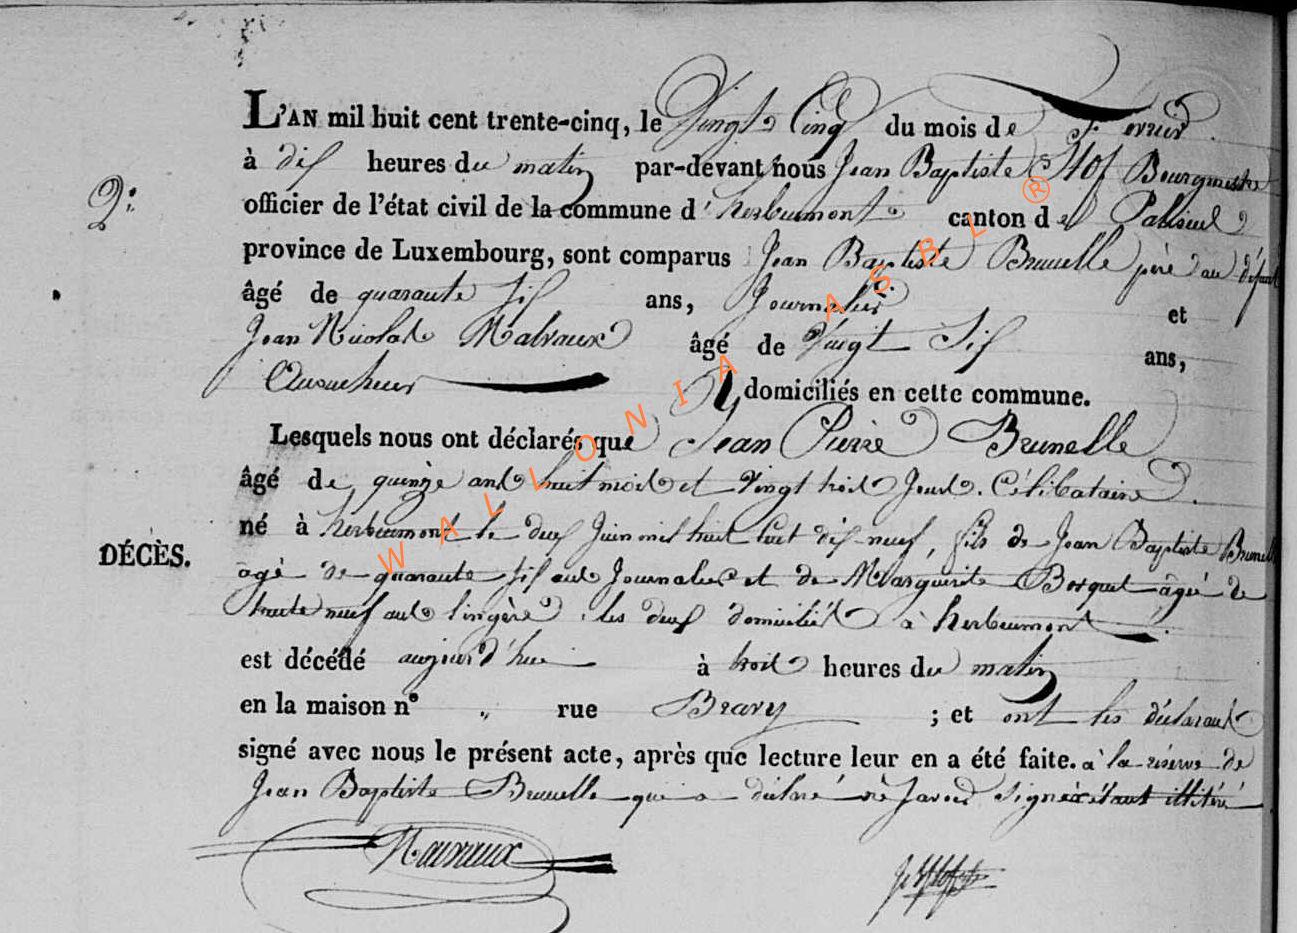 L'AN mil huit cent trente-cinq, le Vingt Cinq du mois de fevrier
à dix heures du matin par-devant nous Jean Baptiste Bourgmestre
2e
officier de l'état civil de la commune d'herbeumont canton de Paliseul
province de Luxembourg, sont comparus Jean Baptiste Brunelle père du défunt
âgé de quarante six ans, Journalier et
Jean Nicolas Malvaux âgé de Vingt Six ans,
domiciliés en cette commune.
Lesquels nous ont déclarés que Jean Pierre Brunelle
âgé de quinze ans huit mois et Vingt trois Jours. Célibataire
né à herbeumont le deux Juin mil huit Cent dix neuf, fils de Jean Baptiste Brunelle
DÉCÈS.
âgé de quarante six ans Journalier et de Marguerite Bosquet âgée de
trente neuf ans lingère, les deux domiciliés à herbeumont
est décédé aujourd'hui à trois heures du matin
en la maison n° „ rue Bravy ; et ont les déclarants
signé avec nous le présent acte, après que lecture leur en a été faite. à la réserve de
Jean Baptiste Brunelle qui a déclaré ne savoir signer étant illitéré
Malvaux
WALLONIA ASBL ®